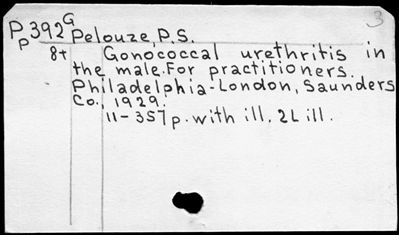 3
Pp392G Pelouze, P.S.
8+ Gonococcal urethritis in
the male. For practitioners.
Philadelphia-London, Saunders
Co., 1929.
11-357p. with ill. 2L ill.